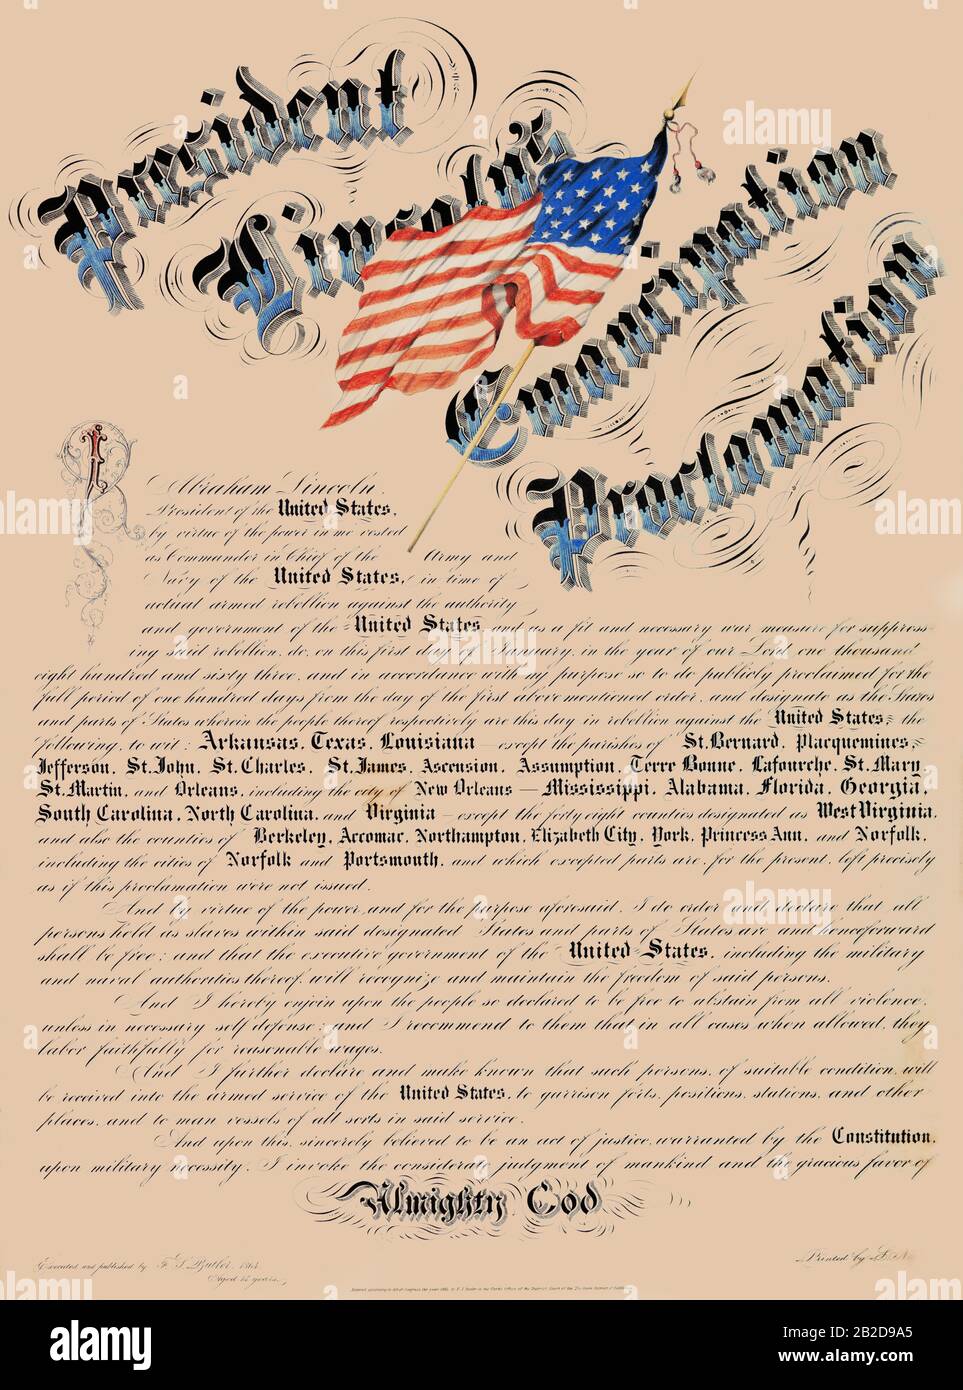 President
Lincoln's
Emancipation
Proclamation
I
Abraham Lincoln,
President of the United States,
by virtue of the power in me vested
as Commander in Chief of the Army and
Navy of the United States, in time of
actual armed rebellion against the authority
and government of the United States, and as a fit and necessary war measure for suppress-
ing said rebellion, do, on this first day of January, in the year of our Lord one thousand
eight hundred and sixty three, and in accordance with my purpose so to do publicly proclaimed for the
full period of one hundred days from the day of the first above mentioned order, and designate as the States
and parts of States wherein the people thereof respectively are this day in rebellion against the United States, the
following, to wit: Arkansas, Texas, Louisiana – except the parishes of St. Bernard, Placquemines,
Jefferson, St. John, St. Charles, St. James, Ascension, Assumption, Terre Bonne, Lafourche, St. Mary
St. Martin, and Orleans, including the city of New Orleans – Mississippi, Alabama, Florida, Georgia,
South Carolina, North Carolina, and Virginia – except the forty eight counties designated as West Virginia,
and also the counties of Berkeley, Accomac, Northampton, Elizabeth City, York, Princess Ann, and Norfolk,
including the cities of Norfolk and Portsmouth, and which excepted parts are, for the present, left precisely
as if this proclamation were not issued.
And by virtue of the power, and for the purpose aforesaid, I do order and declare that all
persons held as slaves within said designated States and parts of States are and henceforward
shall be free; and that the executive government of the United States, including the military
and naval authorities thereof, will recognize and maintain the freedom of said persons.
And I hereby enjoin upon the people so declared to be free to abstain from all violence,
unless in necessary self defense; and I recommend to them that in all cases when allowed, they
labor faithfully for reasonable wages.
And I further declare and make known that such persons, of suitable condition, will
be received into the armed service of the United States, to garrison forts, positions, stations, and other
places, and to man vessels of all sorts in said service.
And upon this, sincerely believed to be an act of justice, warranted by the Constitution,
upon military necessity, I invoke the considerate judgment of mankind and the gracious favor of
Almighty God
Executed and published by F. S. Butler, 1864
Aged 14 years.
Printed by
alamy
Image ID: 2B2D9A5
www.alamy.com